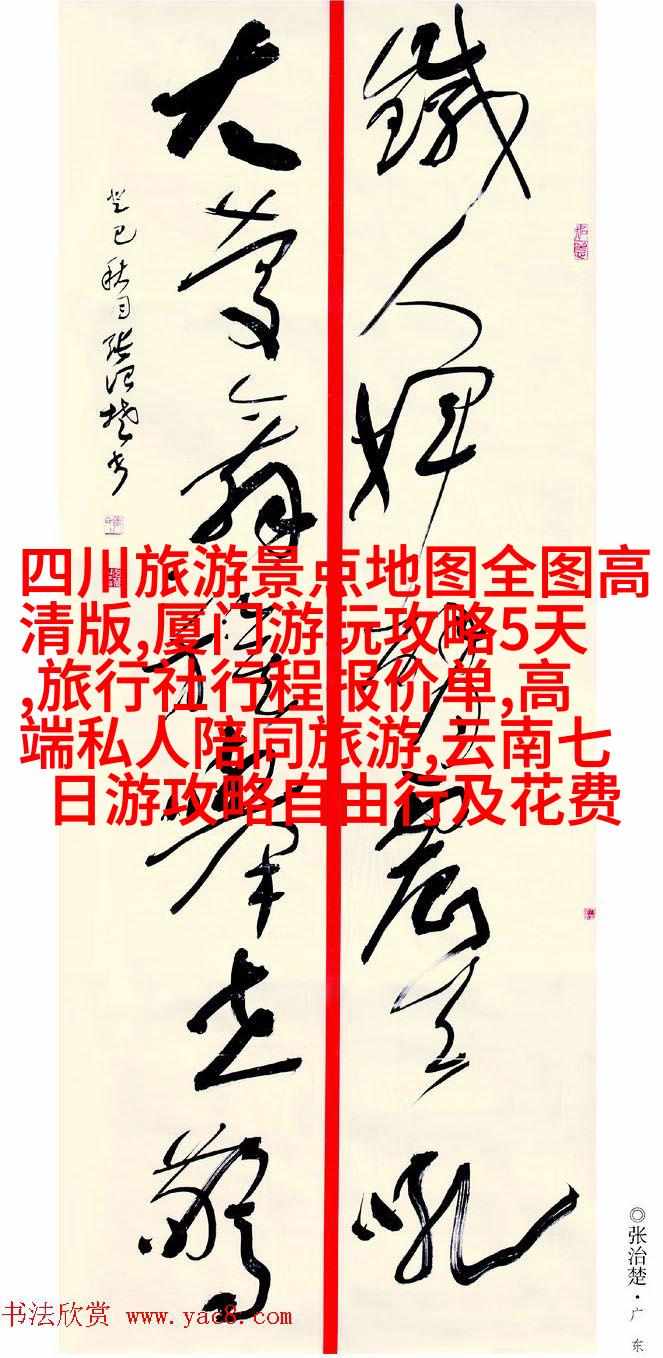 鐵人 震天吼
大 舉世驚
癸巳秋月張治楚書
四川旅游景点地图全图高
清版,厦门游玩攻略5天
,旅行社行程报价单,高
端私人陪同旅游,云南七
日游攻略自由行及花费
◎张治楚·广东
书法欣赏 www.yac8.com